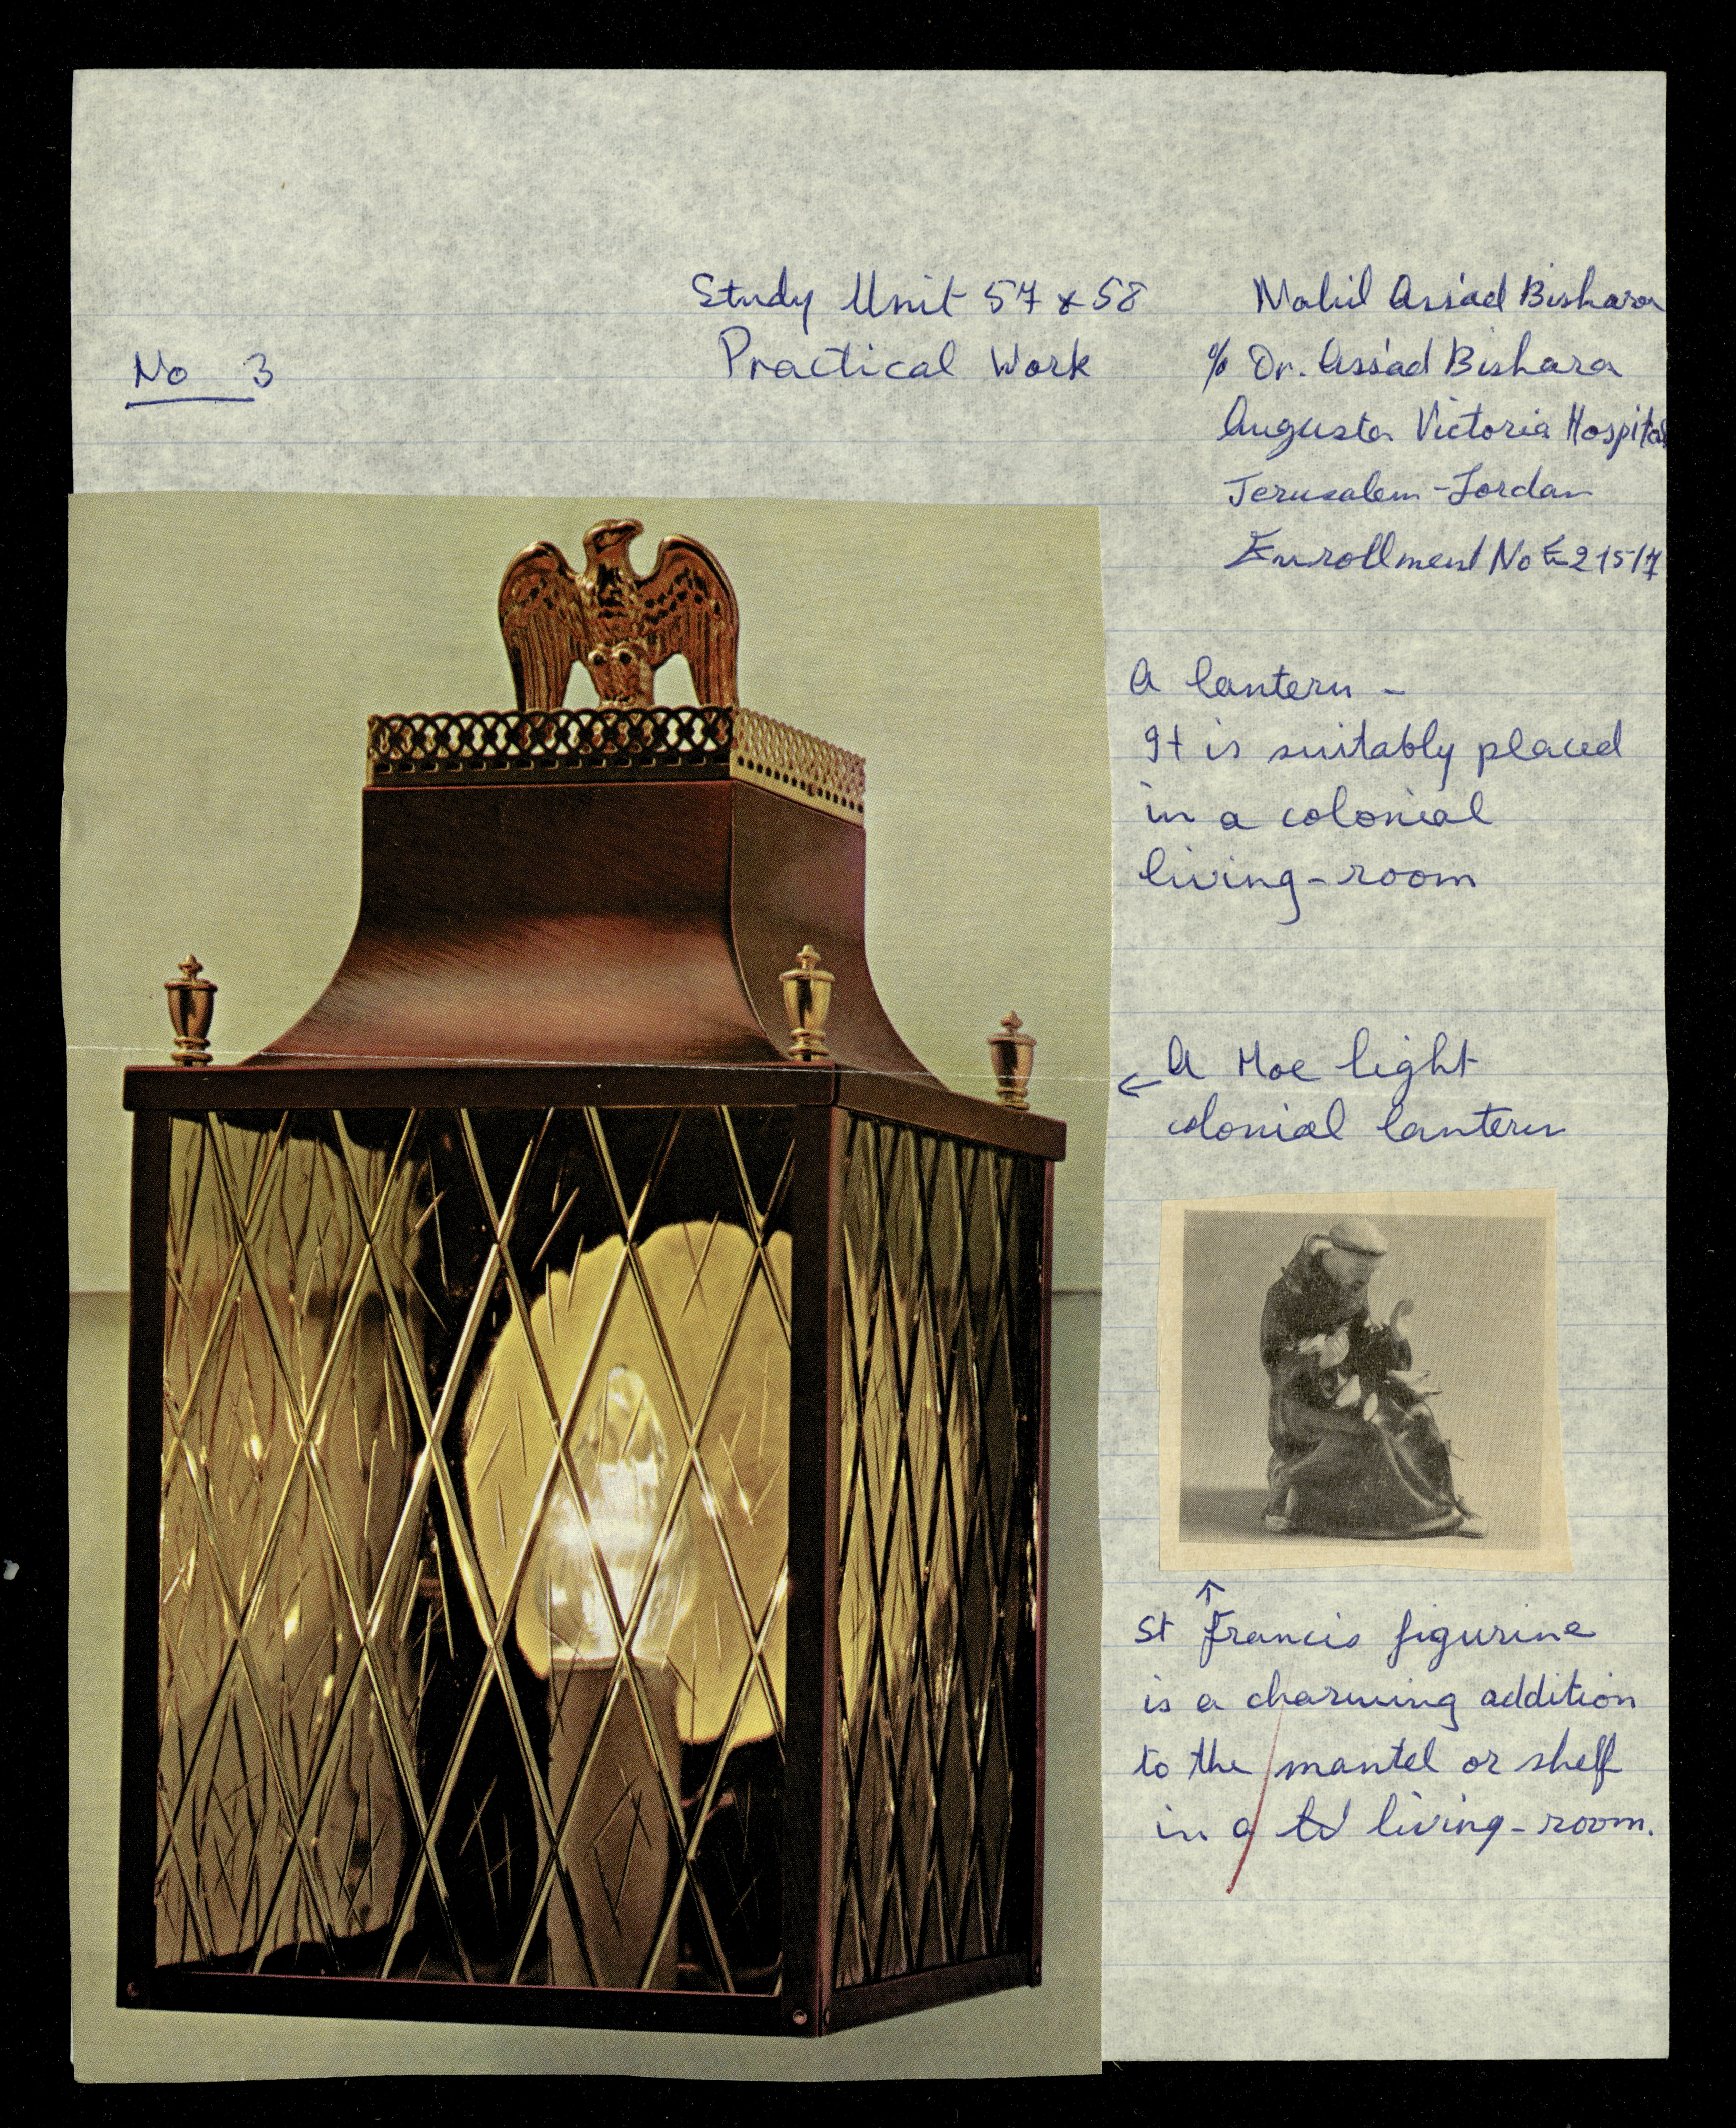 Study Unit 57 & 58
Practical Work
No 3
Assad Bishara
% Dr. Assad Bishara
Augusta Victoria Hospital
Jerusalem - Jordan
Enrollment No E21517
A lantern -
It is suitably placed
in a colonial
living-room
← A Moe light
colonial lantern
↑
St Francis figurine
is a charming addition
to the mantel or shelf
in a living-room.